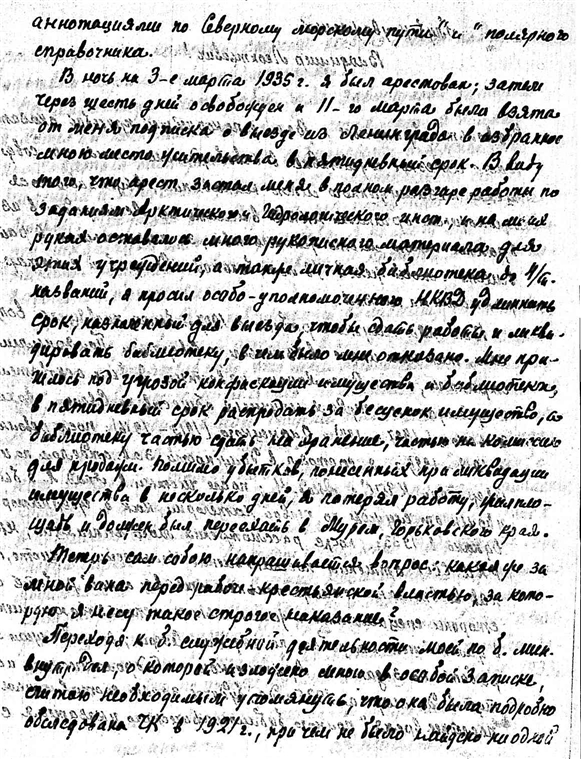 аннотациями по Северному морскому пути" и "полярного
справочника.
В ночь на 3-е марта 1935 г. я был арестован; затем
через шесть дней освобожден и 11-го марта была взята
от меня подписка о выезде из Ленинграда в избранное
мною место жительства в пятидневный срок. В виду
того, что арест застал меня в полном разгаре работы по
заданиям Арктического и Гидрологического инст. и на моих
руках оставалось много рукописного материала для
этих учреждений, а также личная библиотека до
названий, я просил особо-уполномоченного НКВД удлинить
срок, назначенный для выезда, чтобы сдать работы и ликви-
дировать библиотеку, в чем было мне отказано. Мне при-
шлось под угрозой конфискации имущества и библиотеки,
в пятидневный срок распродать за бесценок имущество, а
библиотеку частью сдать на хранение, частью на комиссию
для продажи. Помимо убытков, понесенных при ликвидации
имущества в несколько дней, я потерял работу, жилпло-
щадь и должен был переехать в Муром, Горьковского края.
Теперь сам собою напрашивается вопрос: какая же за
мной вина перед рабоче-крестьянской властью, за кото-
рую я несу такое строгое наказание?
Переходя к б. служебной деятельности моей по б. мин.
внутр. дел, о которой изложено мною в особой записке,
считаю необходимым упомянуть, что она была подробно
обследована ЧК в 1921 г., при чем не было найдено ни одной